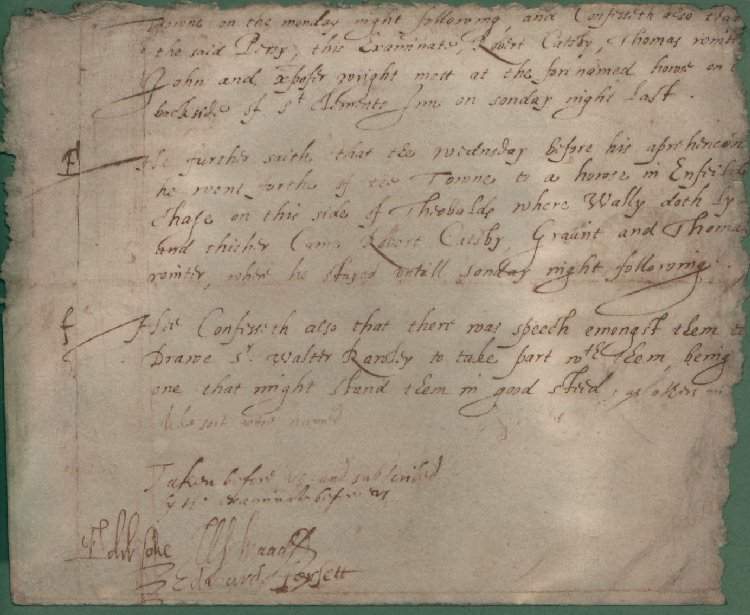 Towne on the monday night following, and Confesseth also that
the said Percy, this Examinate, Robert Catsby, Thomas wintr
John and xpofer wright mett at the forenamed howse on
backside of St Clements Inn on sonday night last.
He further saith that the wednesday before his aprhencion
he went forthe of the Towne to a howse in Enfeild
Chase on this side of Theobalds where Wally doth ly
And thither Came Robert Catsby, Graunt and Thomas
winter, where he stayed untill sonday night following.
Hee Confesseth also that there was speech emongst them to
Drawe Sr. Walter Rawley to take part wth them, being
one that might stand them in good steed, as others in
like sort were named
Taken before us and subscribed
by the examinate before us
Edw Coke W Waad
Edward Forsett